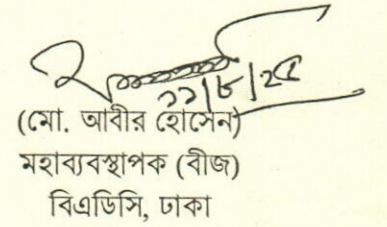 ১১/৮/২৫
(মো. আবীর হোসেন)
মহাব্যবস্থাপক (বীজ)
বিএডিসি, ঢাকা